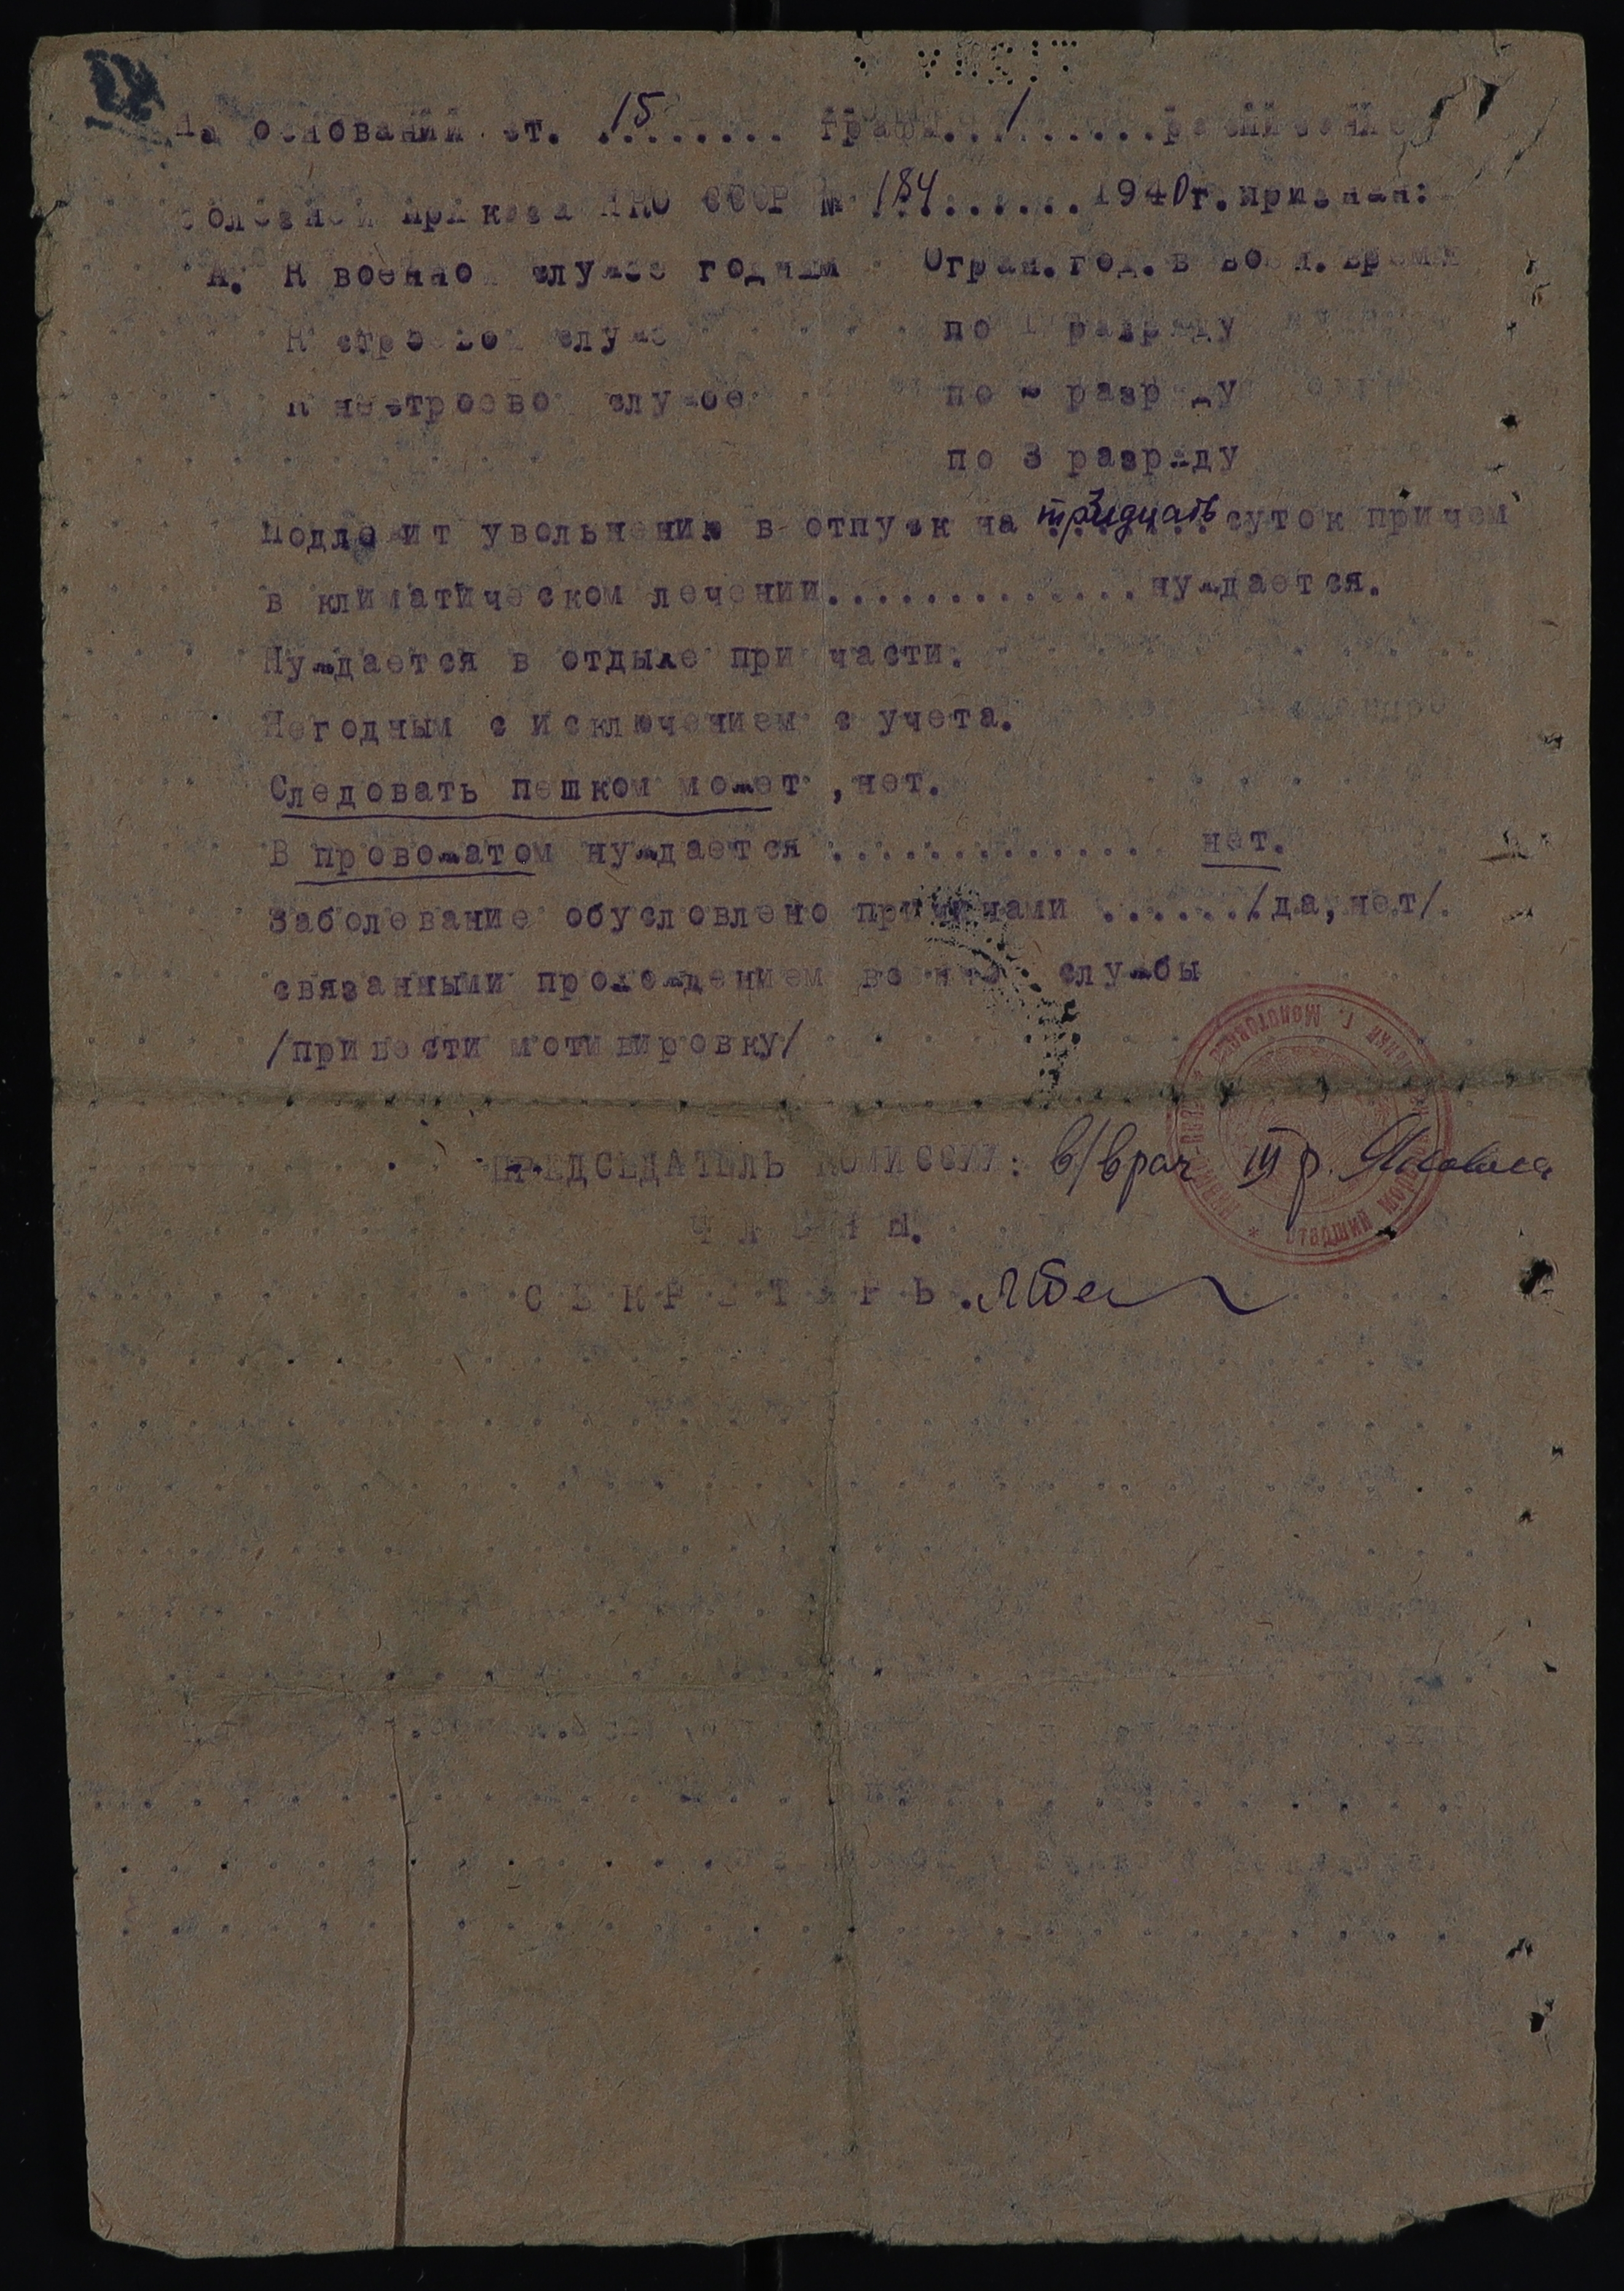 На основании ст. .15....... графы...1......расписание
болезней приказа НКО СССР № 184........1940г.признан:
А. К военной службе годным Огран.год.в воен.время
К строевой службе по 1 разряду
К нестроевой службе по 2 разряду
по 3 разряду
Подлежит увольнению в отпуск на тридцать суток причем
в климатическом лечении.............нуждается.
Нуждается в отдыхе при части.
Негодным с исключением с учета.
Следовать пешком может ,нет.
В провожатом нуждается .............. нет.
Заболевание обусловлено причинами ....../да,нет/.
связанными прохождением военной службы
/привести мотивировку/
ПРЕДСЕДАТЕЛЬ КОМИССИИ: в/врач III р.
ЧЛЕНЫ.
СЕКРЕТАРЬ.
г. Молотова